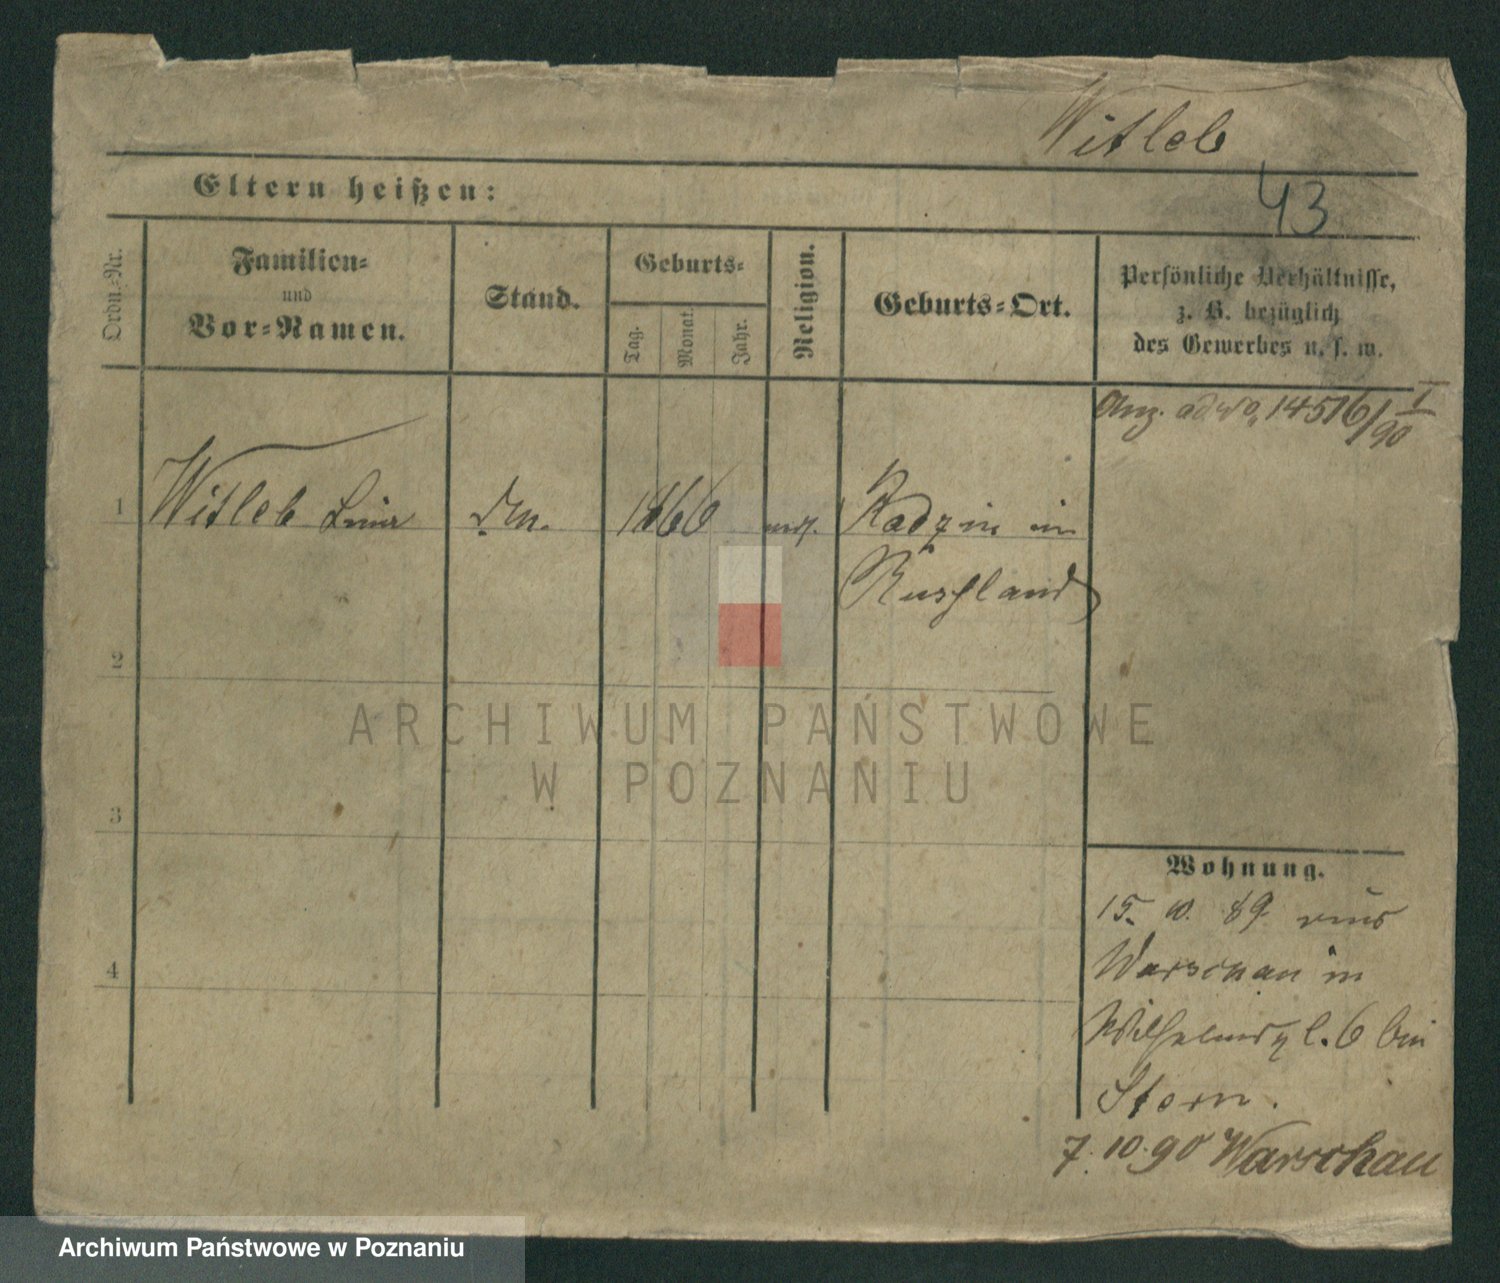 Witleb
43
Eltern heißen:
Ordn.-Nr.
Familien-
und
Vor-Namen.
Stand.
Geburts-
Tag.
Monat.
Jahr.
Religion.
Geburts-Ort.
Persönliche Verhältnisse,
z. B. bezüglich
des Gewerbes u. s. w.
Anz. 14516/I 90
1 Witleb 1866 Radzin in
Russland
2
3
4
Wohnung.
15. 10. 89 aus
Warschau in
Wilhelmspl. 6 bei
Stern.
7.10.90 Warschau
ARCHIWUM PAŃSTWOWE
W POZNANIU
Archiwum Państwowe w Poznaniu